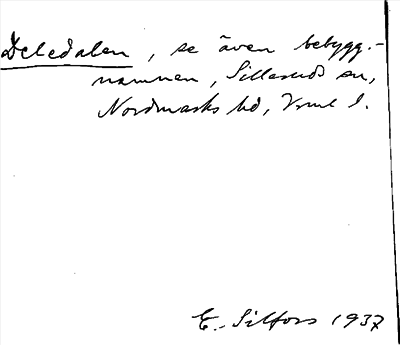 Deledalen, se även bebygg.-
namnen, Silleruds sn,
Nordmarks hd, Vrml l.
E. Silfors 1937